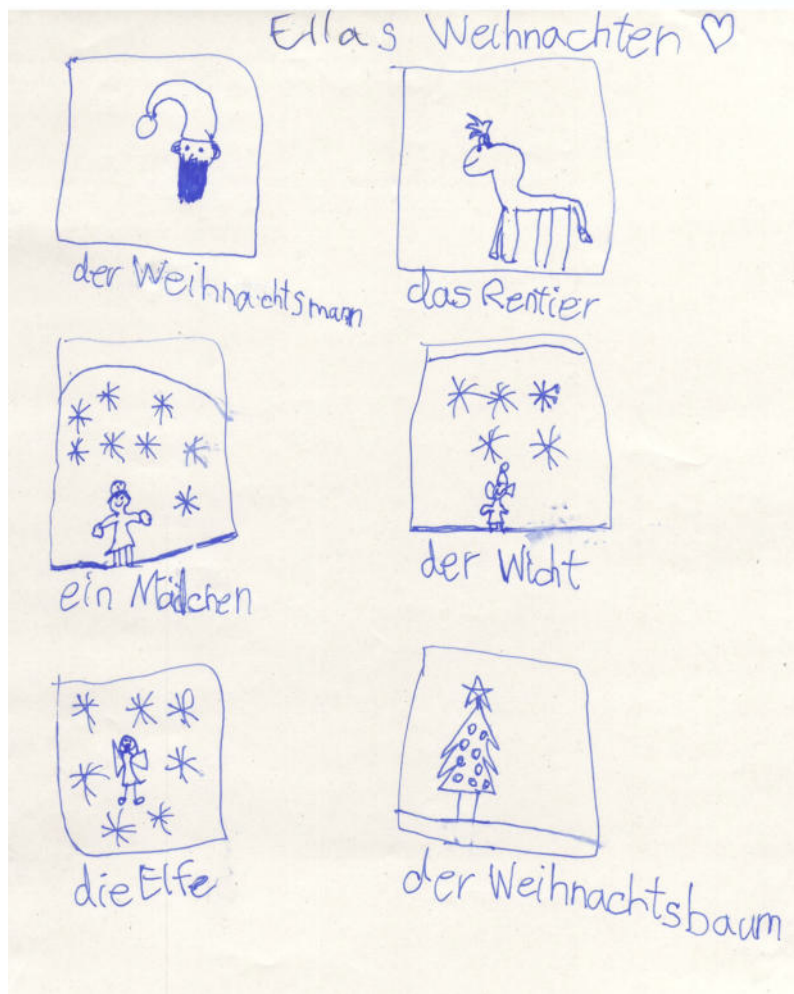 Ellas Weihnachten ♡
der Weihnachtsmann
das Rentier
ein Mädchen
der Wicht
die Elfe
der Weihnachtsbaum